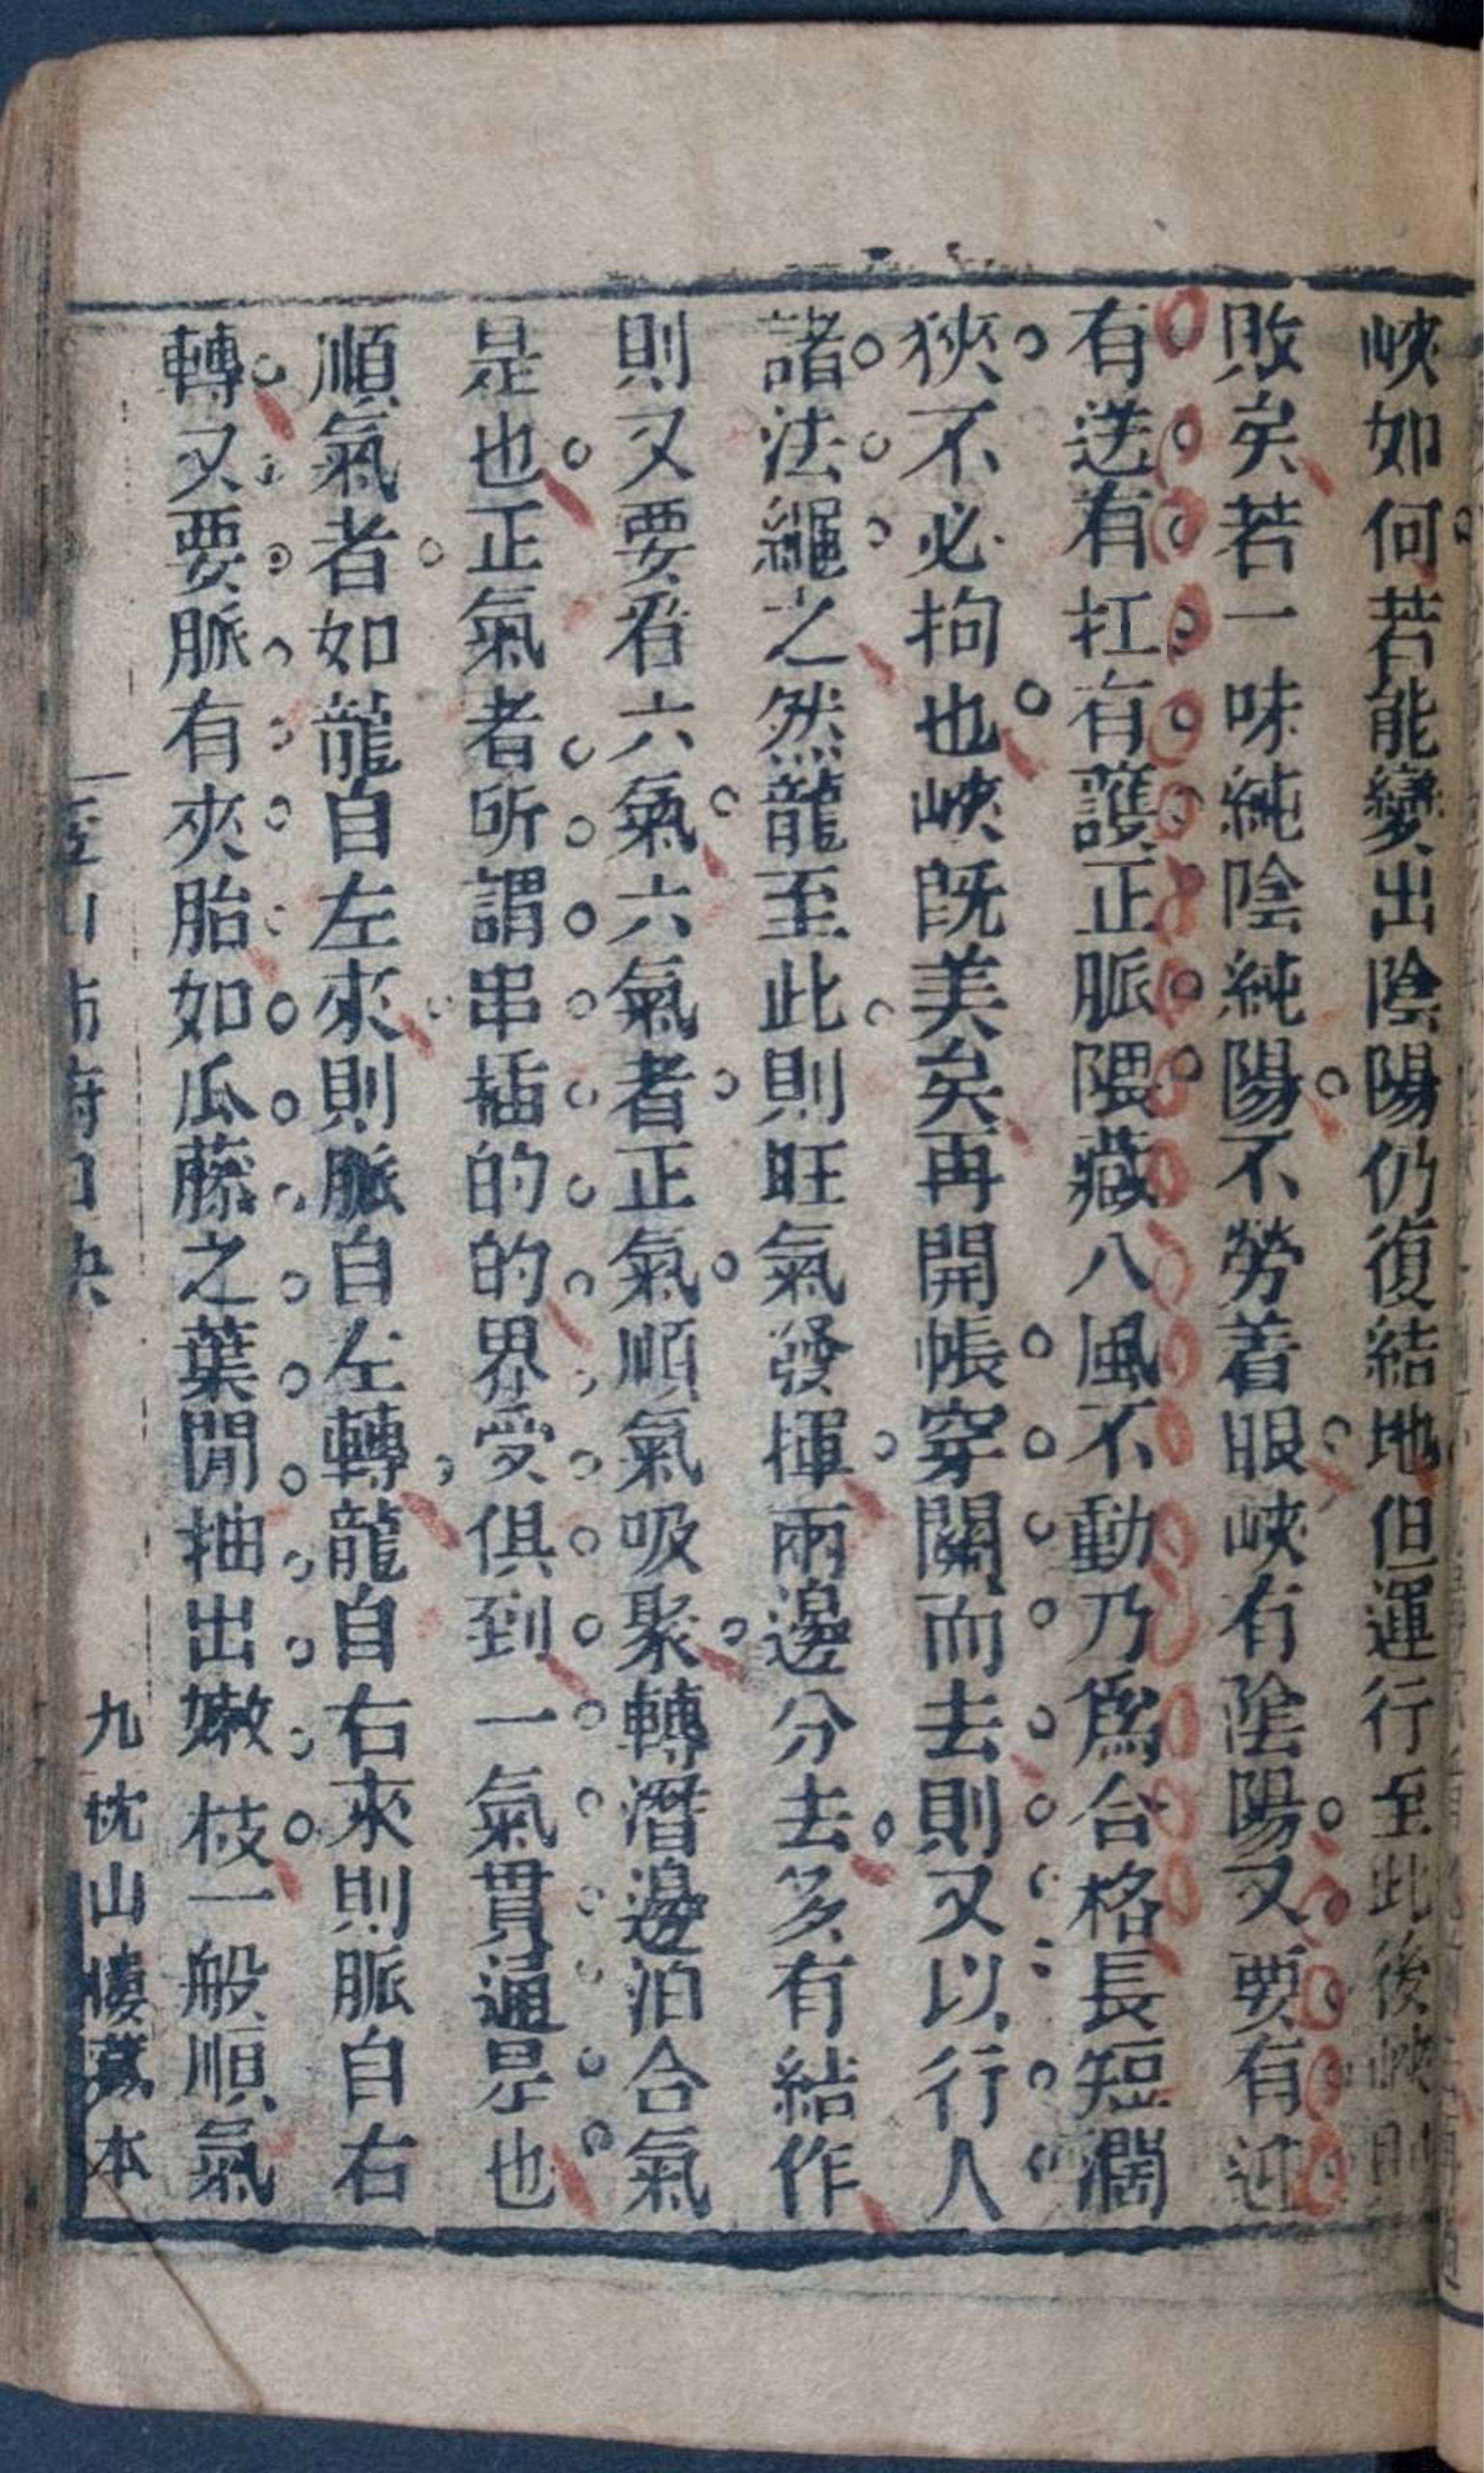 峽如何若能變出陰陽仍復結地但運行至此後峽則
敗矣若一味純陰純陽不勞着眼峽有陰陽又要有迎
有送有扛有護正脈隈藏八風不動乃爲合格長短濶
狹不必拘也峽既美矣再開帳穿關而去則又以行人
諸法繩之然龍至此則旺氣發揮兩邊分去多有結作
則又要看六氣六氣者正氣順氣吸聚轉潛邊泊合氣
是也正氣者所謂串插的的界受俱到一氣貫通是也
順氣者如龍自左來則脈自左轉龍自右來則脈自右
轉又要脈有夾胎如瓜藤之葉閒抽出嫩枝一般順氣
九忱山樓藏本